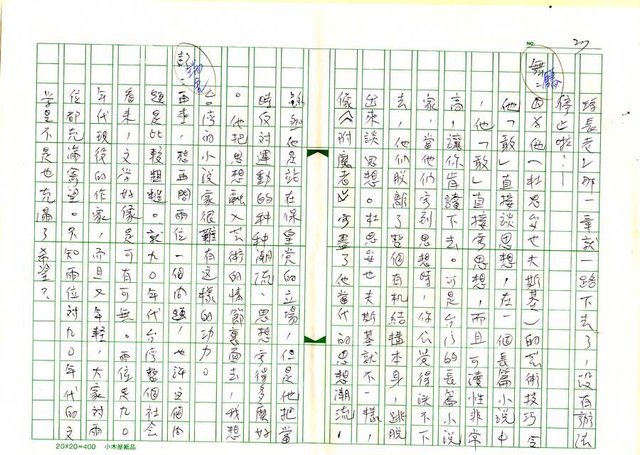 NO.
舞鶴
場長走以那一章就一路下去了，沒有辦法
停止啦！
因為他(杜思妥也夫斯基)的藝術技巧令
他「敢」直接談思想，在一個長篇小說中
，他「敢」直接寫思想，而且可讀性非常
高，讓你肯讀下去。可是台灣的長篇小說
家，當他們寫到思想時，你會覺得讀不下
去，他們脫離了整個有机結構本身，跳脫
出來談思想。杜思妥也夫斯基就不一樣，
像《附魔者》，寫盡了他當代的思想潮流，
雖然他是站在保皇黨的立場，但是他把當
時反對運動的种种潮流、思想寫得多麼好
。他把思想融入藝術的情節裏面去，我想
台灣的小說家很難有這樣的功力。
彭
再來，想再問兩位一個問題，也許這個問
題是比較粗糙。就九〇年代台灣整個社會
看來，文學好像是可有可無。兩位是九〇
年代現役的作家，而且又年輕，大家對兩
位都充滿寄望。不知兩位對九〇年代的文
學是不是也充滿了希望？
20X20=400 小木屋紙品